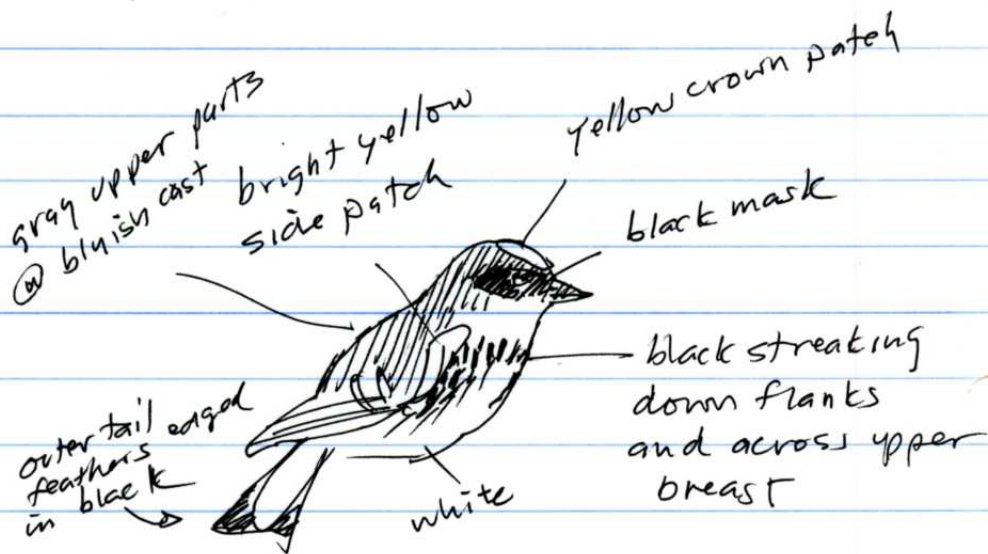 gray upper parts
@ bluish cast
bright yellow
side patch
yellow crown patch
black mask
black streaking
down flanks
and across upper
breast
outer tail edged
feathers
in black
white